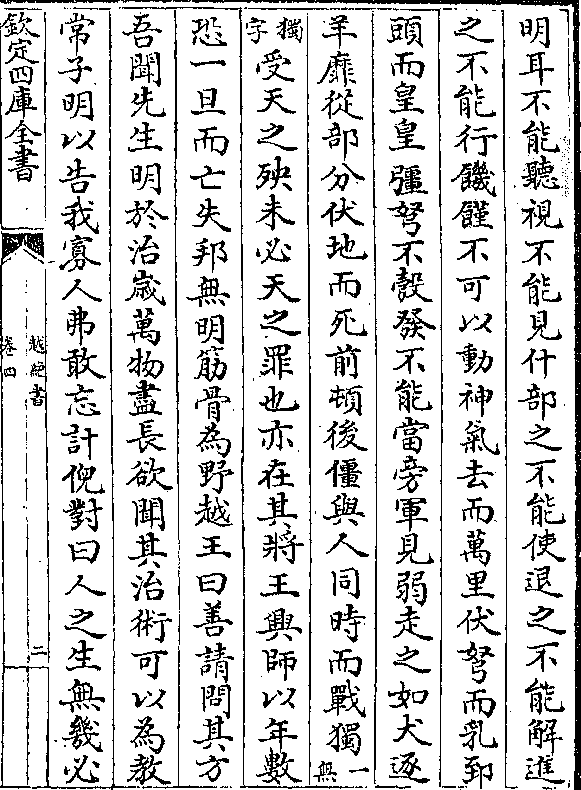 明耳不能聽視不能見什部之不能使退之不能解進
之不能行饑饉不可以動神氣去而萬里伏弩而乳郅
頭而皇皇彊弩不彀發不能當旁軍見弱走之如犬逐
羊靡從部分伏地而死前頓後僵與人同時而戰獨一無
獨字受天之殃未必天之罪也亦在其將王興師以年數
恐一旦而亡失邦無明筋骨為野越王曰善請問其方
吾聞先生明於治歲萬物盡長欲聞其治術可以為教
常子明以告我寡人弗敢忘計倪對曰人之生無幾必
欽定四庫全書
越絶書
卷四
二